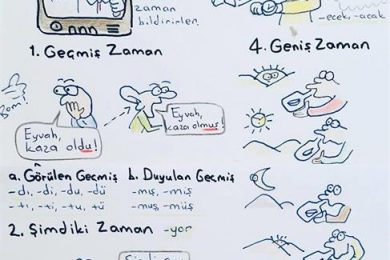 zaman
bildirirler.
-ecek, -acak
1. Geçmiş Zaman
4. Geniş Zaman
Bom!
Eyvah,
kaza oldu!
Eyvah,
kaza olmuş!
a. Görülen Geçmiş
-dı, -di, -du, -dü
-tı, -ti, -tu, -tü
b. Duyulan Geçmiş
-mış, -miş
-muş -müş
2. Şimdiki Zaman -yor